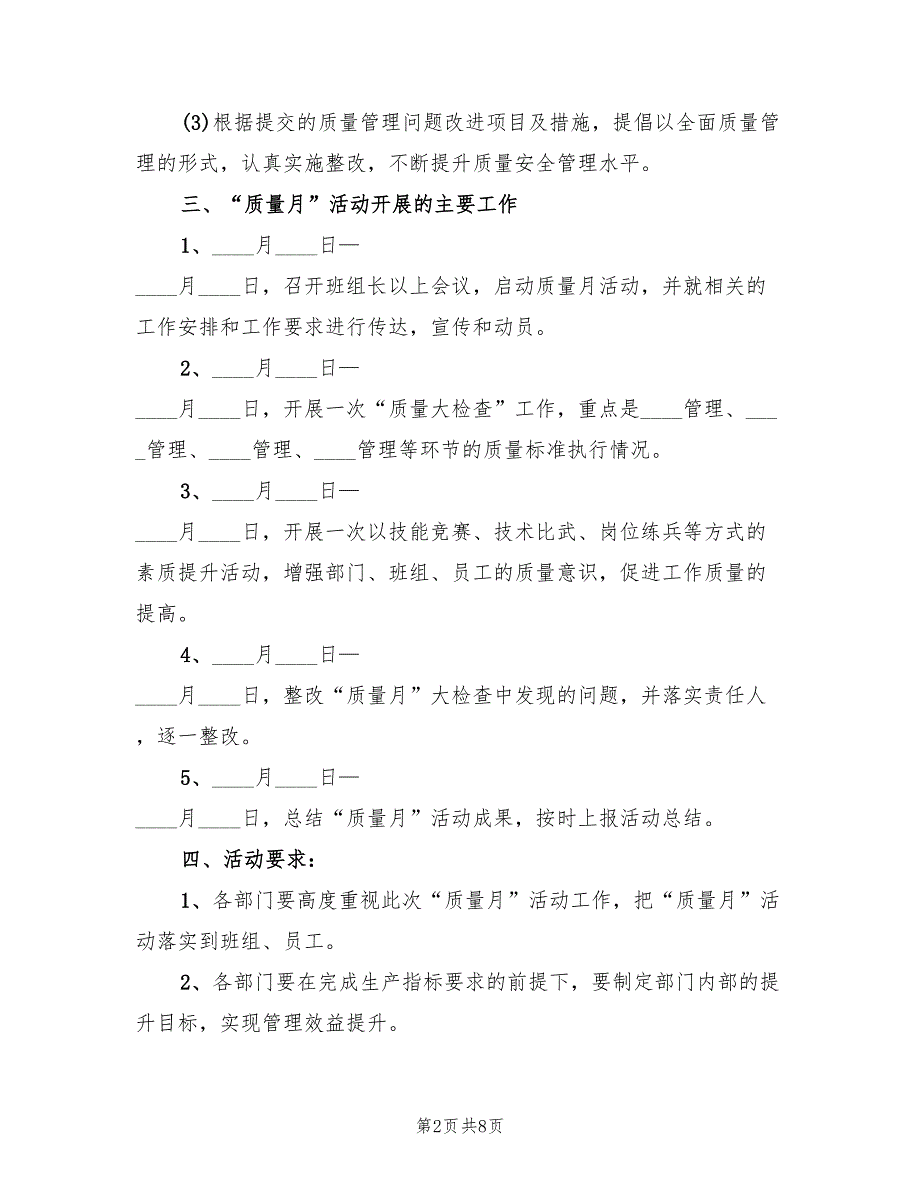 (3)根据提交的质量管理问题改进项目及措施，提倡以全面质量管
理的形式，认真实施整改，不断提升质量安全管理水平。
三、“质量月”活动开展的主要工作
1、____月____日—
____月____日，召开班组长以上会议，启动质量月活动，并就相关的
工作安排和工作要求进行传达，宣传和动员。
2、____月____日—
____月____日，开展一次“质量大检查”工作，重点是____管理、___
_管理、____管理、____管理等环节的质量标准执行情况。
3、____月____日—
____月____日，开展一次以技能竞赛、技术比武、岗位练兵等方式的
素质提升活动，增强部门、班组、员工的质量意识，促进工作质量的
提高。
4、____月____日—
____月____日，整改“质量月”大检查中发现的问题，并落实责任人
，逐一整改。
5、____月____日—
____月____日，总结“质量月”活动成果，按时上报活动总结。
四、活动要求：
1、各部门要高度重视此次“质量月”活动工作，把“质量月”活
动落实到班组、员工。
2、各部门要在完成生产指标要求的前提下，要制定部门内部的提
升目标，实现管理效益提升。
第2页 共8页